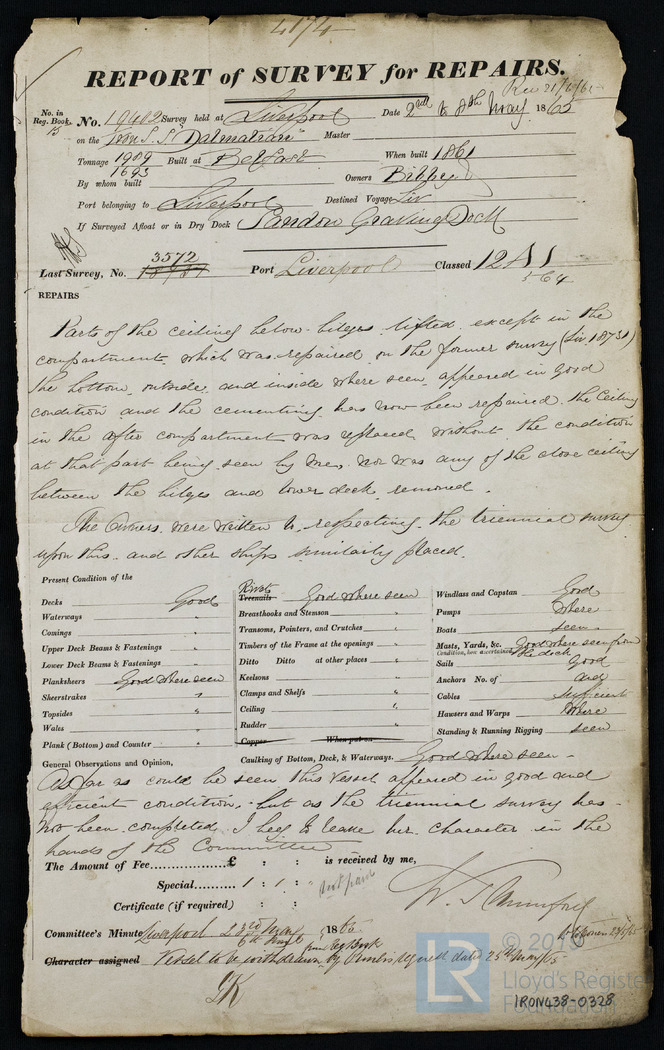 4174
REPORT of SURVEY for REPAIRS.
Rec 21/6/65
No. in Reg. Book.
No. 19402 Survey held at Liverpool Date 2nd to 8th May 1865
on the Iron S.S "Dalmatian" Master
Tonnage 1989 Built at Belfast When built 1861
1693
By whom built Owners Bibby
Port belonging to Liverpool Destined Voyage Liv
If Surveyed Afloat or in Dry Dock Sandon Graving Dock
3572
Last Survey, No. Port Liverpool Classed 12 A1
5 64
REPAIRS
Parts of the ceiling below bilges lifted except in the
compartment which was repaired on the former survey (Liv 18731)
The bottom outside and inside where seen appeared in good
condition and the cementing has now been repaired. The Ceiling
in the after compartment was replaced without the condition
at that part being seen by me, nor was any of the close ceiling
between the bilges and lower deck removed.
The Owners were written to respecting the triennial survey
upon this and other ships similarly placed.
Present Condition of the
Decks Good
Waterways "
Comings "
Upper Deck Beams & Fastenings "
Lower Deck Beams & Fastenings "
Planksheers Good where seen
Sheerstrakes "
Topsides "
Wales "
Plank (Bottom) and Counter "
Rivets
Treenails Good where seen
Breasthooks and Stemson "
Transoms, Pointers, and Crutches "
Timbers of the Frame at the openings "
Ditto Ditto at other places "
Keelsons "
Clamps and Shelfs "
Ceiling "
Rudder "
Copper When put on
Caulking of Bottom, Deck, & Waterways. Good where seen
Windlass and Capstan Good
Pumps where
Boats seen
Masts, Yards, &c. Good where seen from
Condition, how ascertained the deck
Sails Good
Anchors No. of and
Cables Sufficient
Hawsers and Warps where
Standing & Running Rigging seen
General Observations and Opinion,
As far as could be seen this Vessel appeared in good and
efficient condition, but as the triennial survey has
not been completed I beg to leave her character in the
hands of the Committee
The Amount of Fee £ : : is received by me,
Special 1 : 1 : " not paid
Certificate (if required) : :
Committee's Minute Liverpool 23rd May 1865
Character assigned Vessel to be withdrawn from Reg Book by Owners request dated 25th May/65
© 2016
Lloyd's Register
Foundation
LR
IRON438-0328